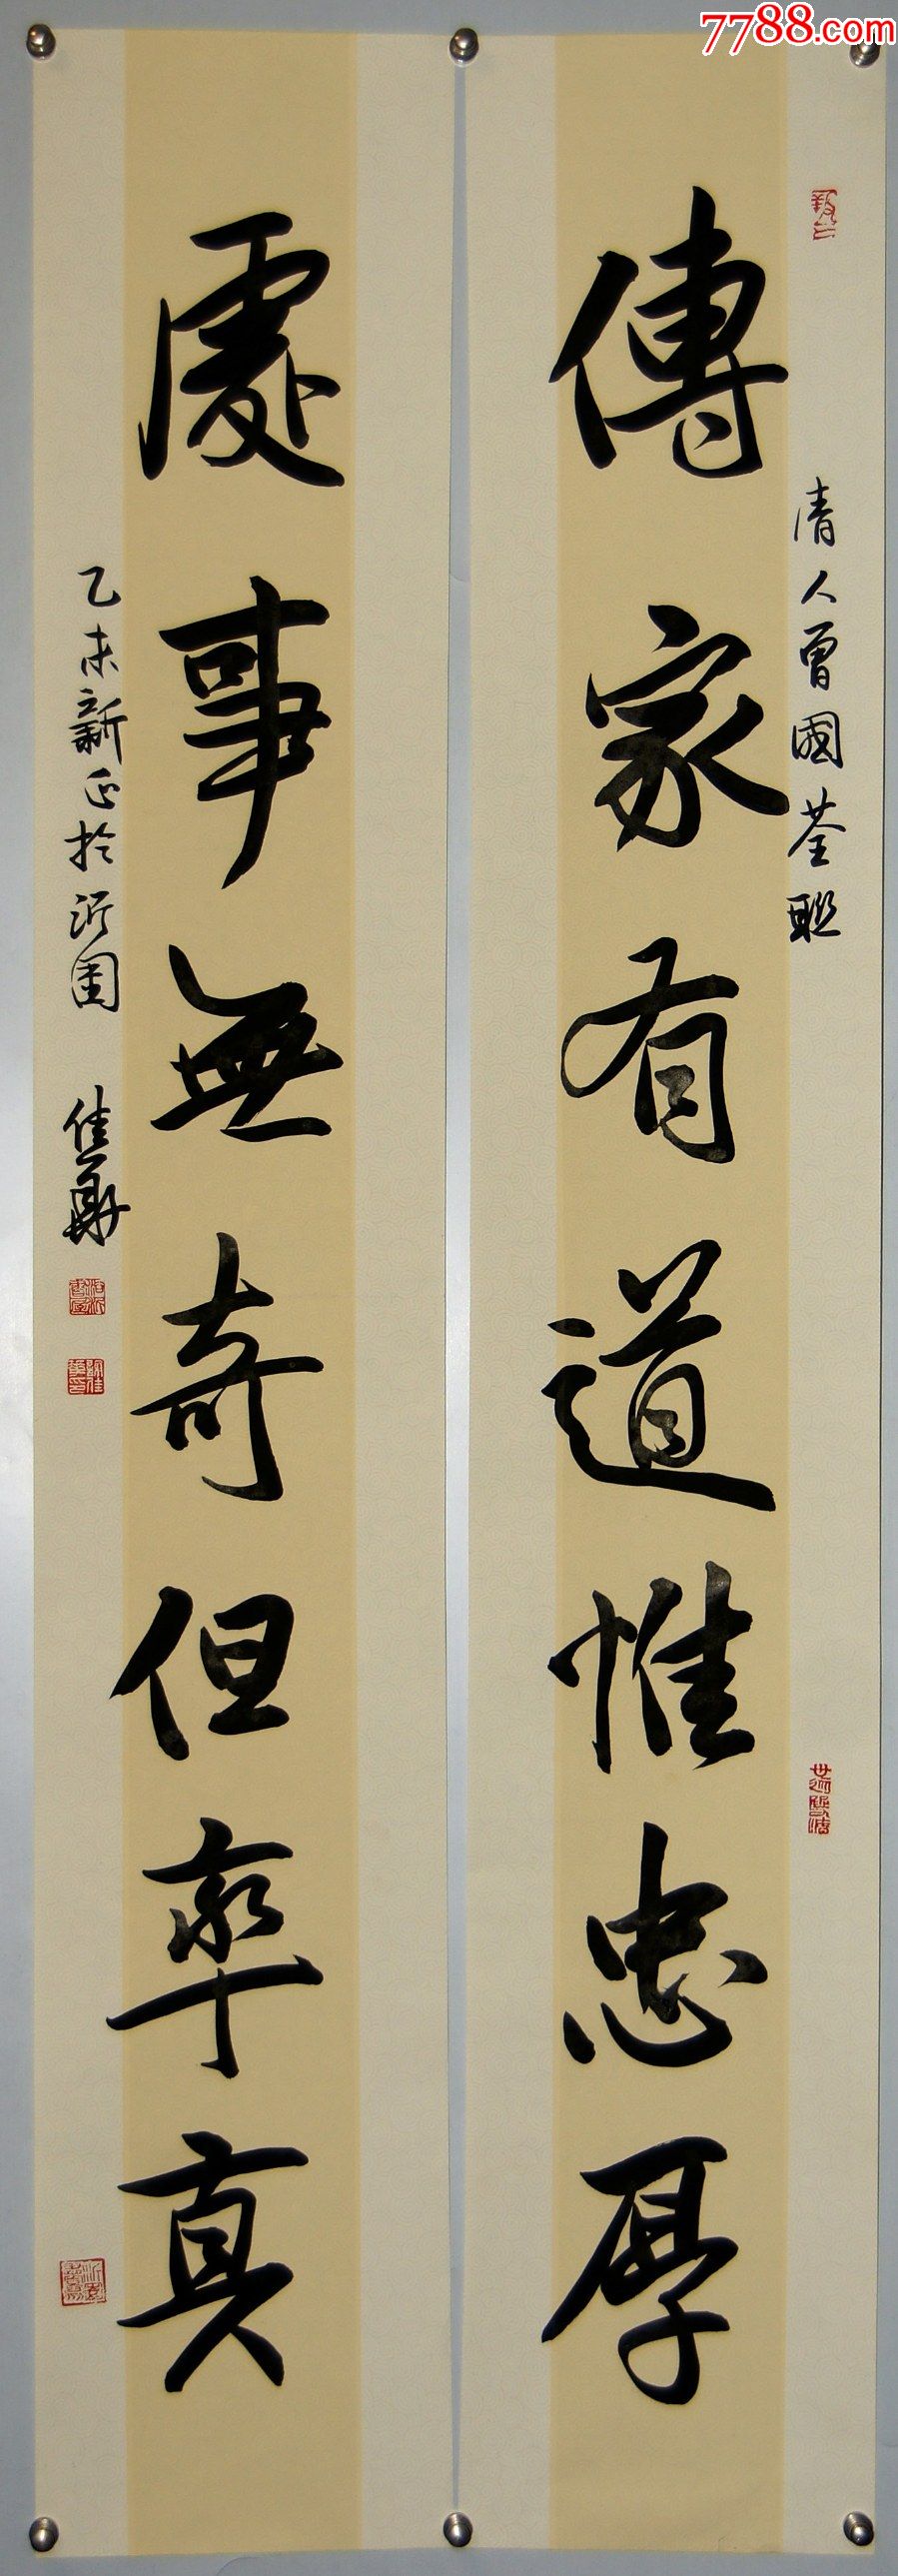 7788.com
傳家有道惟忠厚
清人曾國荃聯
處事無奇但率真
乙未新正於沂園